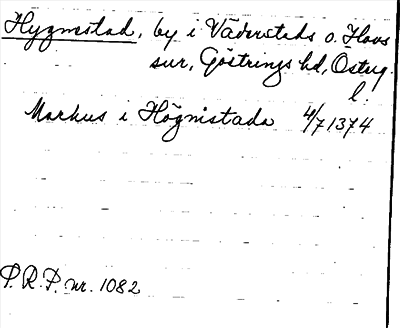 Hygnestad, by i Väderstads o. Hovs
snr, Göstrings hd, Östrg.
l.
Markus i Högnistada 4/7 1374
P.R.P. nr. 1082